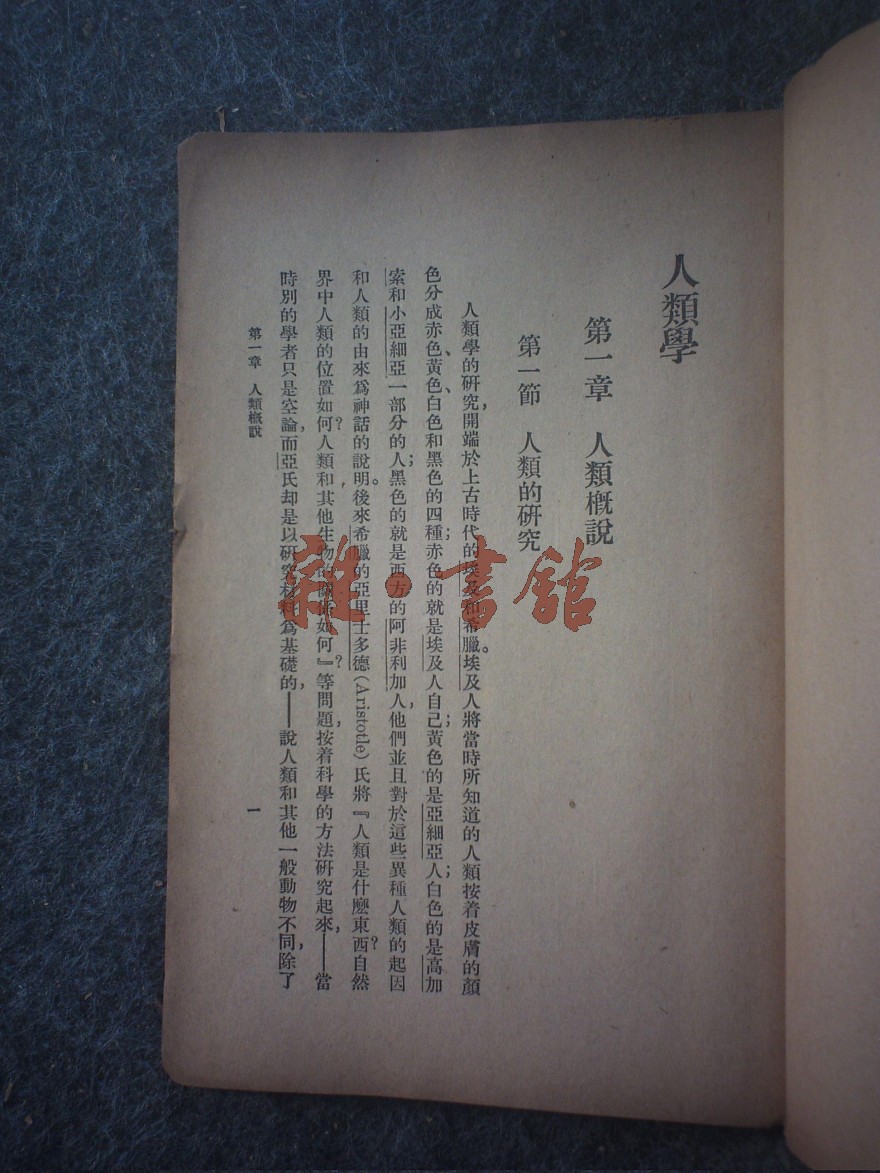 人類學
第一章 人類概說
第一節 人類的研究
人類學的研究，開端於上古時代的埃及和希臘。埃及人將當時所知道的人類按着皮膚的顏
色分成赤色、黃色、白色和黑色的四種；赤色的就是埃及人自己；黃色的是亞細亞人；白色的是高加
索和小亞細亞一部分的人；黑色的就是西方的阿非利加人，他們並且對於這些異種人類的起因
和人類的由來爲神話的說明。後來希臘的亞里士多德(Aristotle)氏將『人類是什麼東西？自然
界中人類的位置如何？人類和其他生物的關係如何？』等問題，按着科學的方法研究起來，——當
時別的學者只是空論，而亞氏却是以研究材料爲基礎的，——說人類和其他一般動物不同，除了
第一章 人類概說
一
雜·書館